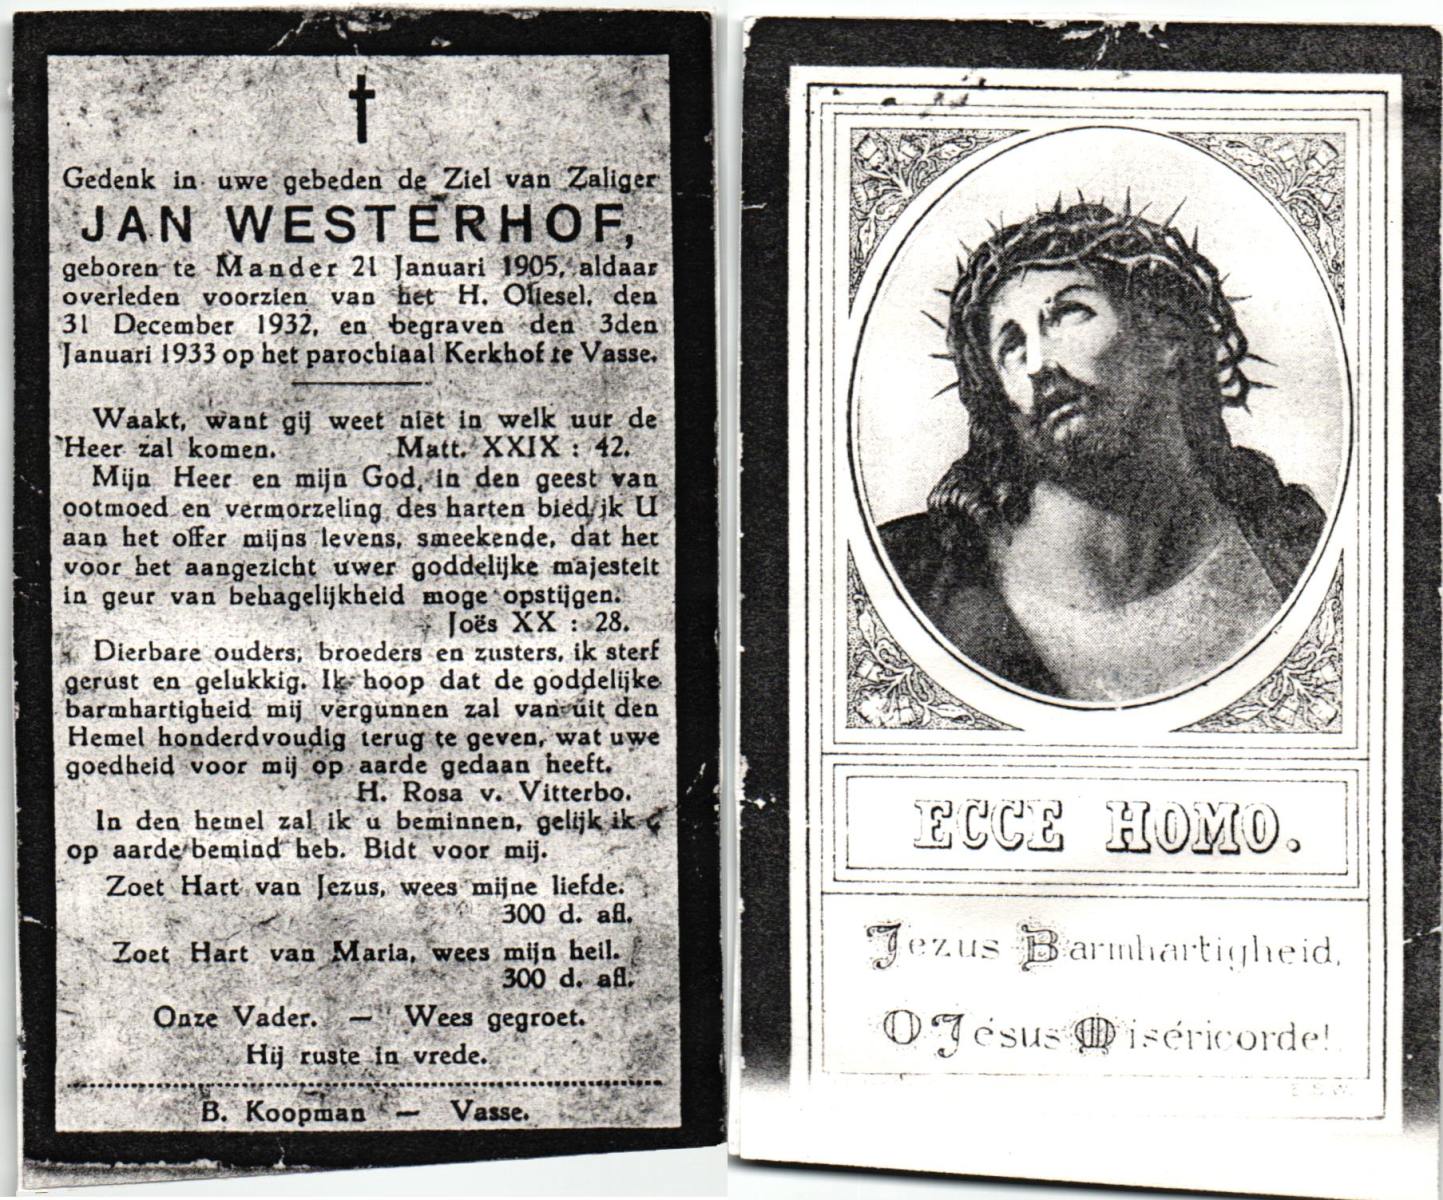 Gedenk in uwe gebeden de Ziel van Zaliger
JAN WESTERHOF,
geboren te Mander 21 Januari 1905, aldaar
overleden voorzien van het H. Oliesel, den
31 December 1932, en begraven den 3den
Januari 1933 op het parochiaal Kerkhof te Vasse.
Waakt, want gij weet niet in welk uur de
Heer zal komen. Matt. XXIX : 42.
Mijn Heer en mijn God, in den geest van
ootmoed en vermorzeling des harten bied ik U
aan het offer mijns levens, smeekende, dat het
voor het aangezicht uwer goddelijke majesteit
in geur van behagelijkheid moge opstijgen.
Joës XX : 28.
Dierbare ouders, broeders en zusters, ik sterf
gerust en gelukkig. Ik hoop dat de goddelijke
barmhartigheid mij vergunnen zal van uit den
Hemel honderdvoudig terug te geven, wat uwe
goedheid voor mij op aarde gedaan heeft.
H. Rosa v. Vitterbo.
In den hemel zal ik u beminnen, gelijk ik
op aarde bemind heb. Bidt voor mij.
Zoet Hart van Jezus, wees mijne liefde.
300 d. afl.
Zoet Hart van Maria, wees mijn heil.
300 d. afl.
Onze Vader. — Wees gegroet.
Hij ruste in vrede.
B. Koopman — Vasse.
ECCE HOMO.
Jezus Barmhartigheid,
O Jésus Miséricorde!